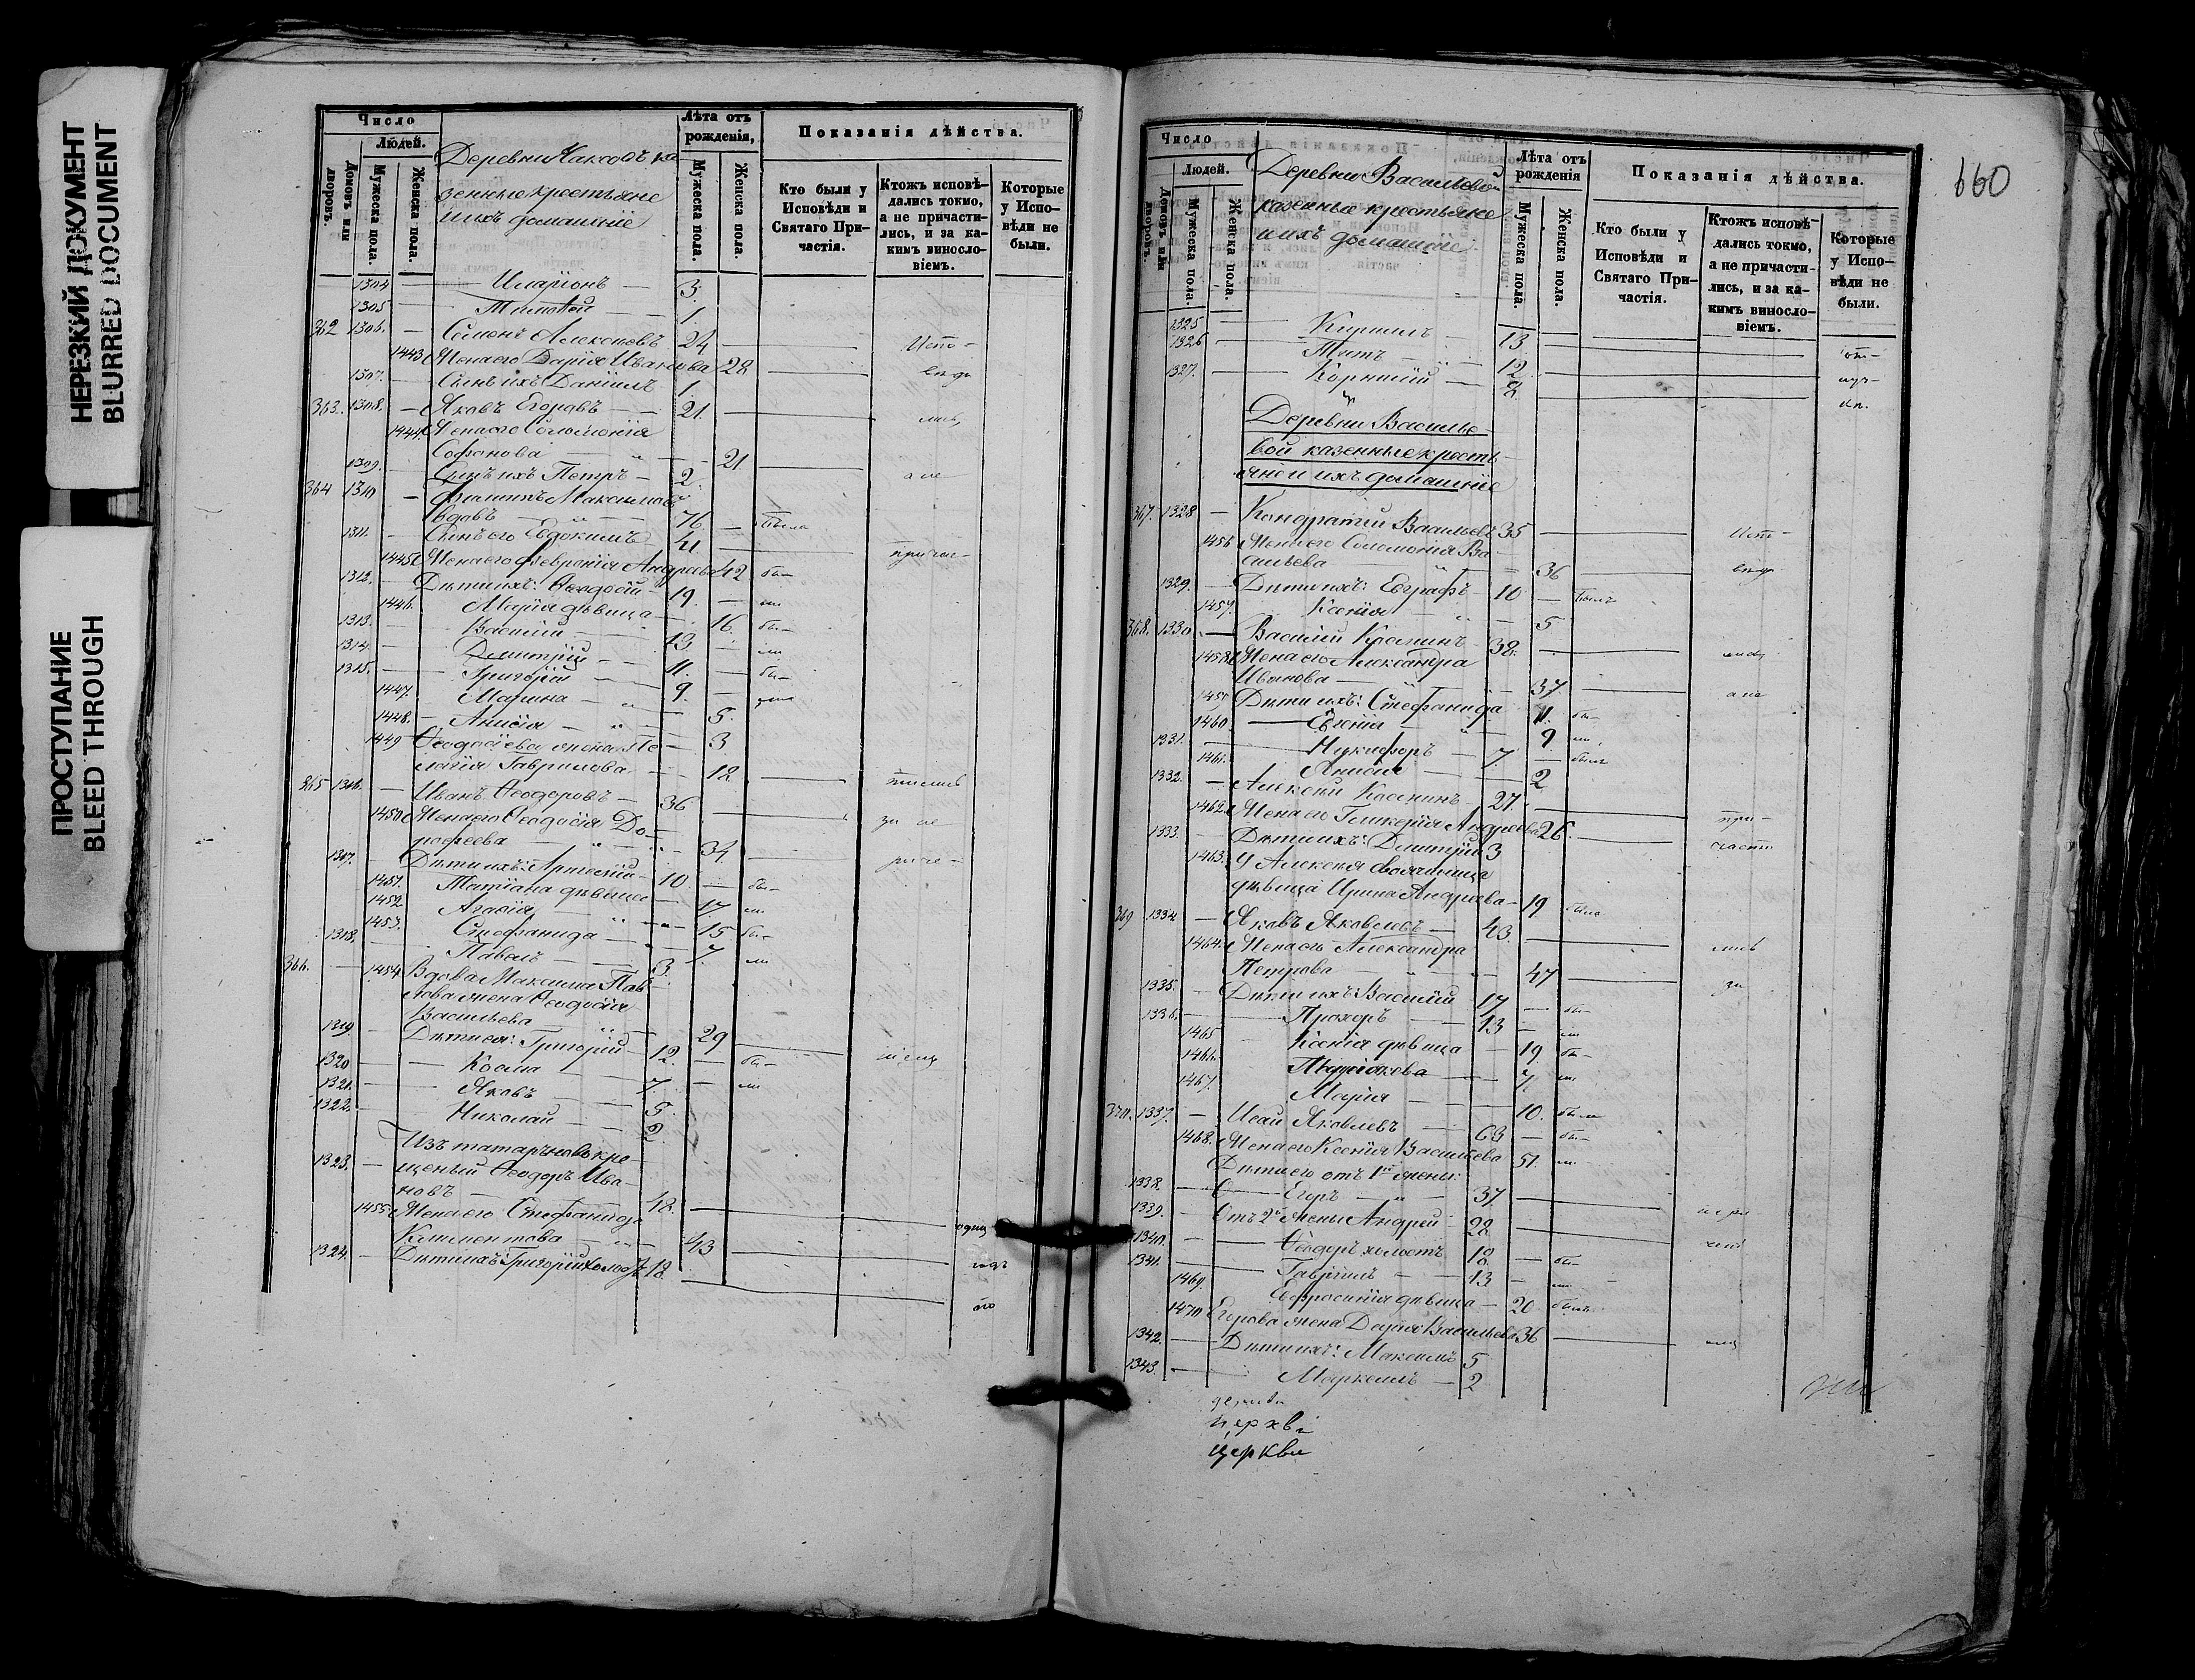 НЕРЕЗКИЙ ДОКУМЕНТ
BLURRED DOCUMENT
ПРОСТУПАНИЕ
BLEED THROUGH
Число
Людей.
Домовъ или дворовъ.
Мужеска пола.
Женска пола.
Деревни ка-
зенные крестьяне
и ихъ домашнiе
Лѣта отъ
рожденiя,
Мужеска пола.
Женска пола.
Показанiя дѣйства.
Кто были у
Исповѣди и
Святаго При-
частiя.
Ктожъ исповѣ-
дались токмо,
а не причасти-
лись, и за ка-
кимъ виносло-
вiемъ.
Которые
у Испо-
вѣди не
были.
1304 — Иларiонъ — 3.
1305 — Тимофей — 1.
362 1306. — Семенъ Алексѣевъ 24 — Испо-
1443 Жена его Дарiя Иванова 28 — вѣда
1307. — Сынъ ихъ Данiилъ 1.
363. 1308. — Яковъ Егоровъ — 21. — лись
1444. Жена его Соломонiя
Софонова — 21
1309. — Сынъ ихъ Петръ — 2. а не
364 1310 — Филиппъ Максимовъ
вдовъ — 76. —
1311. — Сынъ его Евдокимъ — 41 — причас-
1445 Жена его Феврониiя Андреева 42 бы-
1312. — Дѣти ихъ: Ѳеодосiй — 19. — ли
1446. Марiя дѣвица — 16. бы-
1313. — Василiй — 13 — ли
1314. — Димитрiй — 11. — бы-
1315. — Григорiй — 9. — ли
1447. Марина — 5.
1448. — Анисiя — 3
1449 Ѳеодосiева жена Пе-
лагiя Гаврилова — 18 — тились
365 1316. — Иванъ Ѳеодоровъ — 36 — за не
1450 Жена его Ѳеодосiя До-
рофеева — 34
1317. — Дѣти ихъ: Артемiй — 10. — бы-
1451. Татiана дѣвица — 17. ли
1452. Агафiя — 15 бы-
1453. Стефанида — 7. ли
1318. — Павелъ — 3.
366. — 1454. Вдова Максима Пав-
лова жена Ѳеодосiя
Васильева — 29
1319. — Дѣти ея: Григорiй — 12. — бы-
1320 — Косма — 7. — ли
1321. — Яковъ — 5.
1322. — Николай — 2.
Изъ татаръ новокре-
1323. — щеный Ѳеодоръ Ива-
новъ — 48.
1455 Жена его Стефанида
Климентова — 43
1324. — Дѣти ихъ: Григорiй холостъ 18.
660
Число
Людей.
Домовъ или дворовъ.
Мужеска пола.
Женска пола.
Деревни Васильевой
казенные крестьяне
и ихъ домашнiе.
Лѣта отъ
рожденiя
Мужеска пола.
Женска пола.
Показанiя дѣйства.
Кто были у
Исповѣди и
Святаго При-
частiя.
Ктожъ исповѣ-
дались токмо,
а не причасти-
лись, и за ка-
кимъ виносло-
вiемъ.
Которые
у Испо-
вѣди не
были.
1325 — Кирилъ — 13
1326 — Титъ — 12.
1327. — Корнилiй — 8
Деревни Василье-
вой казенные кресть-
яне и ихъ домашнiе
367. 1328 — Кондратiй Васильевъ 35 — Испо-
1456 Жена его Соломонiя Ва-
сильева — 36 — вѣда
1329. — Дѣти ихъ: Евграфъ — 10 — былъ
1457. Ксенiя — 5
368. 1330. — Василiй Косминъ — 38. — лись
1458. Жена его Александра
Иванова — 37 — а не
1459 Дѣти ихъ: Стефанида 11. бы-
1460 — 9 ли.
1331. — Никифоръ — 7. — былъ
1461. Анисiя — 2
1332. — Алексѣй Косминъ — 27. — при-
1462. Жена его Гликерiя Андреева 26. — части
1333. — Дѣти ихъ: Димитрiй 3
1463. У Алексѣя своячиница
дѣвица Ирина Андреева — 19 была
369 1334 — Яковъ Яковлевъ — 43. — лись
1464. Жена его Александра
Петрова — 47 — за
1335. — Дѣти ихъ: Василiй 17 — бы-
1336. — Прохоръ — 13 — ли
1465 Ксенiя дѣвица — 19. бы-
1466. — 7. ли.
1467. Марiя — 10. была
370. 1337. — Исай Яковлевъ — 63 — бы-
1468. Жена его Ксенiя Васильева 51. ли.
Дѣти его отъ 1й жены:
1338. — Егоръ — 37.
1339. — Отъ 2й жены Андрей 22
1340. — Ѳеодоръ холостъ 18 — бы-
1341. — Гаврiилъ — 13 — ли
1469. Евфросинiя дѣвица — 20 была
1470 Егорова жена Дарiя Васильева 36
1342. — Дѣти ихъ: Максимъ 5
1343. — Маркелъ — 2
церкви